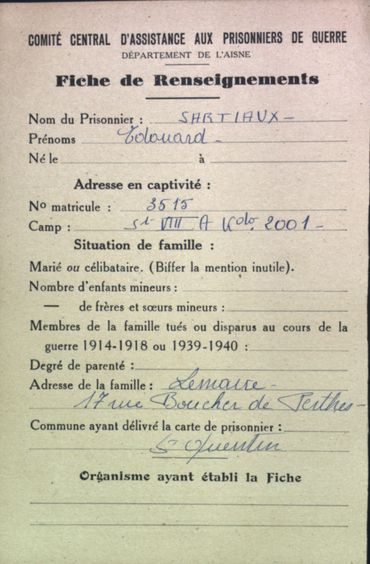 COMITÉ CENTRAL D'ASSISTANCE AUX PRISONNIERS DE GUERRE
DÉPARTEMENT DE L'AISNE
Fiche de Renseignements
Nom du Prisonnier : SARTIAUX -
Prénoms Edouard -
Né le à
Adresse en captivité :
No matricule : 3515
Camp : St VIII A Kdo. 2001 -
Situation de famille :
Marié ou célibataire. (Biffer la mention inutile).
Nombre d'enfants mineurs :
— de frères et sœurs mineurs :
Membres de la famille tués ou disparus au cours de la
guerre 1914-1918 ou 1939-1940 :
Degré de parenté :
Adresse de la famille : Lemaire -
17 rue Boucher de Perthes -
Commune ayant délivré la carte de prisonnier :
St Quentin
Organisme ayant établi la Fiche